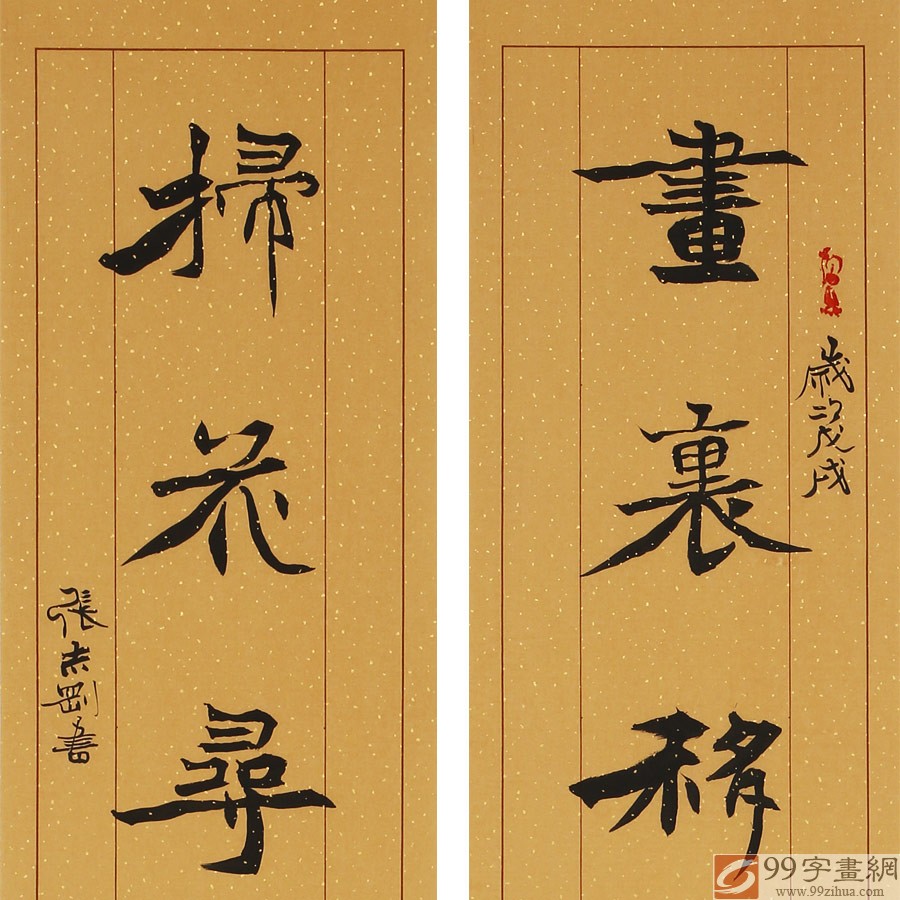 畫裏移
歲次戊戌
掃花尋
張志剛書
99字畫網
www.99zihua.com